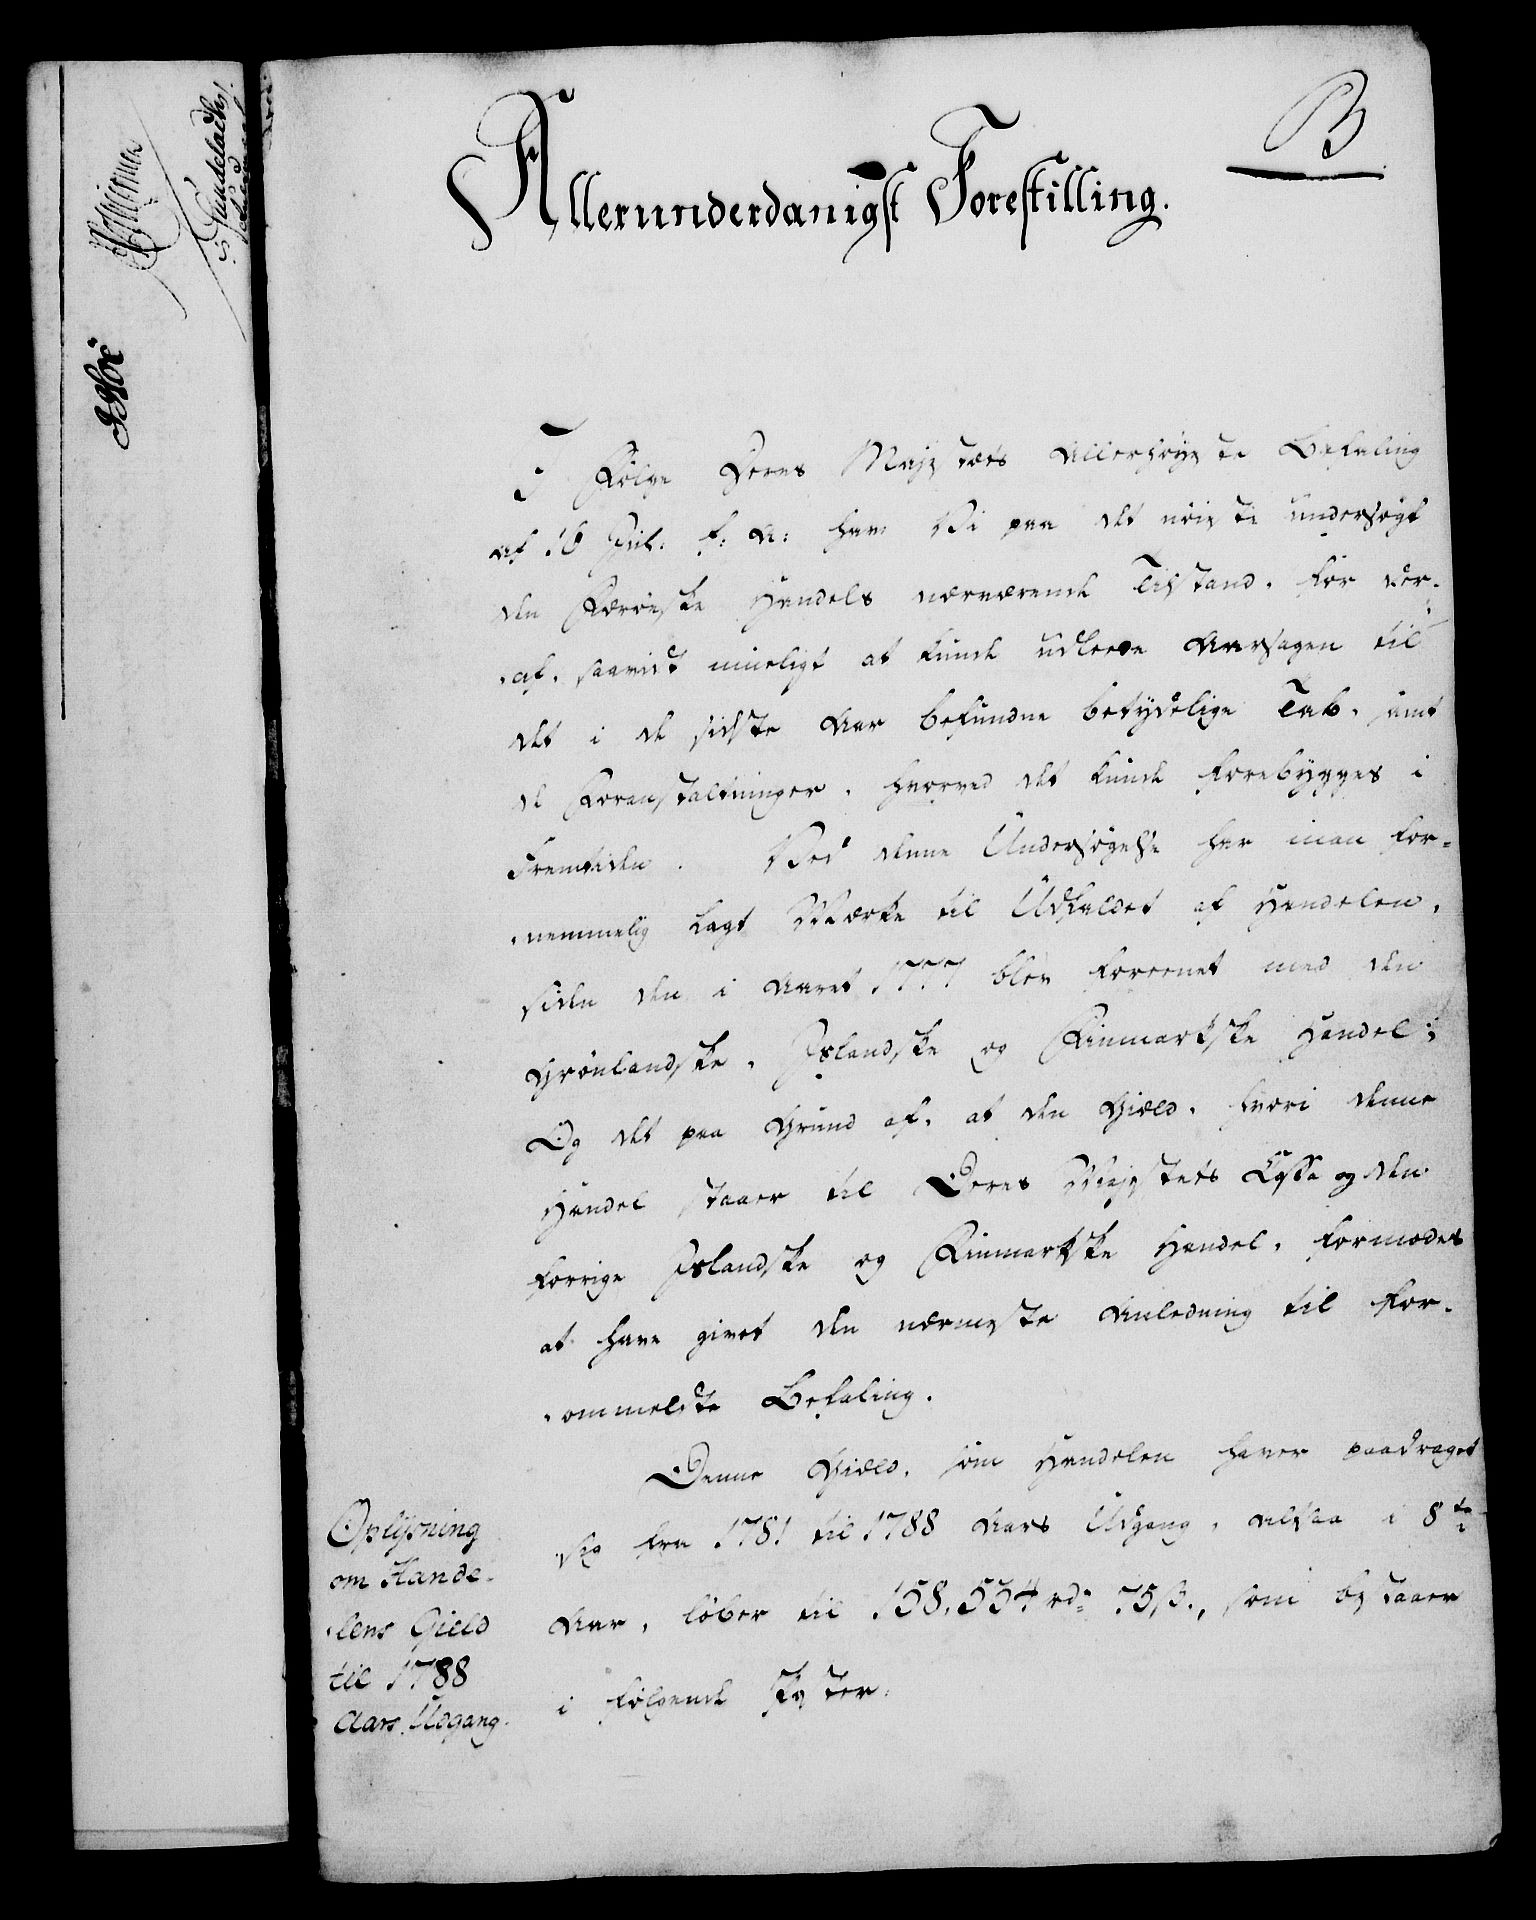 B
Allerunderdanigst Forestilling.
I Følge Deres Majestæts Allerhøyeste Befaling
af 16 Jul. f: A: have Vi paa det nøieste undersøgt
den Færøiske Handels nærværende Tilstand, for der-
af, saavidt mueligt at kunde udleede Aarsagen til
det i de sidste Aar befundne betydelige Tab, samt
de Foranstaltninger, hvorved det kunde forebygges i
Fremtiden. Ved denne Undersøgelse har man for-
nemmelig lagt Mærke til Udfaldet af Handelen,
siden den i Aaret 1777 blev foreenet med den
Grønlandske, Islandske og Finmarkske Handel;
Og det paa Grund af, at den Gield, hvori denne
Handel staaer til Deres Majestæts Cassa og den
forrige Islandske og Finmarkske Handel, formodes
at have givet den nærmeste Anledning til for-
ommeldte Befaling.
Denne Gield, som Handelen haver paadraget
sig fra 1781 til 1788 Aars Udgang, altsaa i 8te
Aar, løber til 158,554 rd. 75 ß., som bestaaer
i følgende Poster.
Oplysning
om Hande-
lens Gield
til 1788
Aars Udgang.